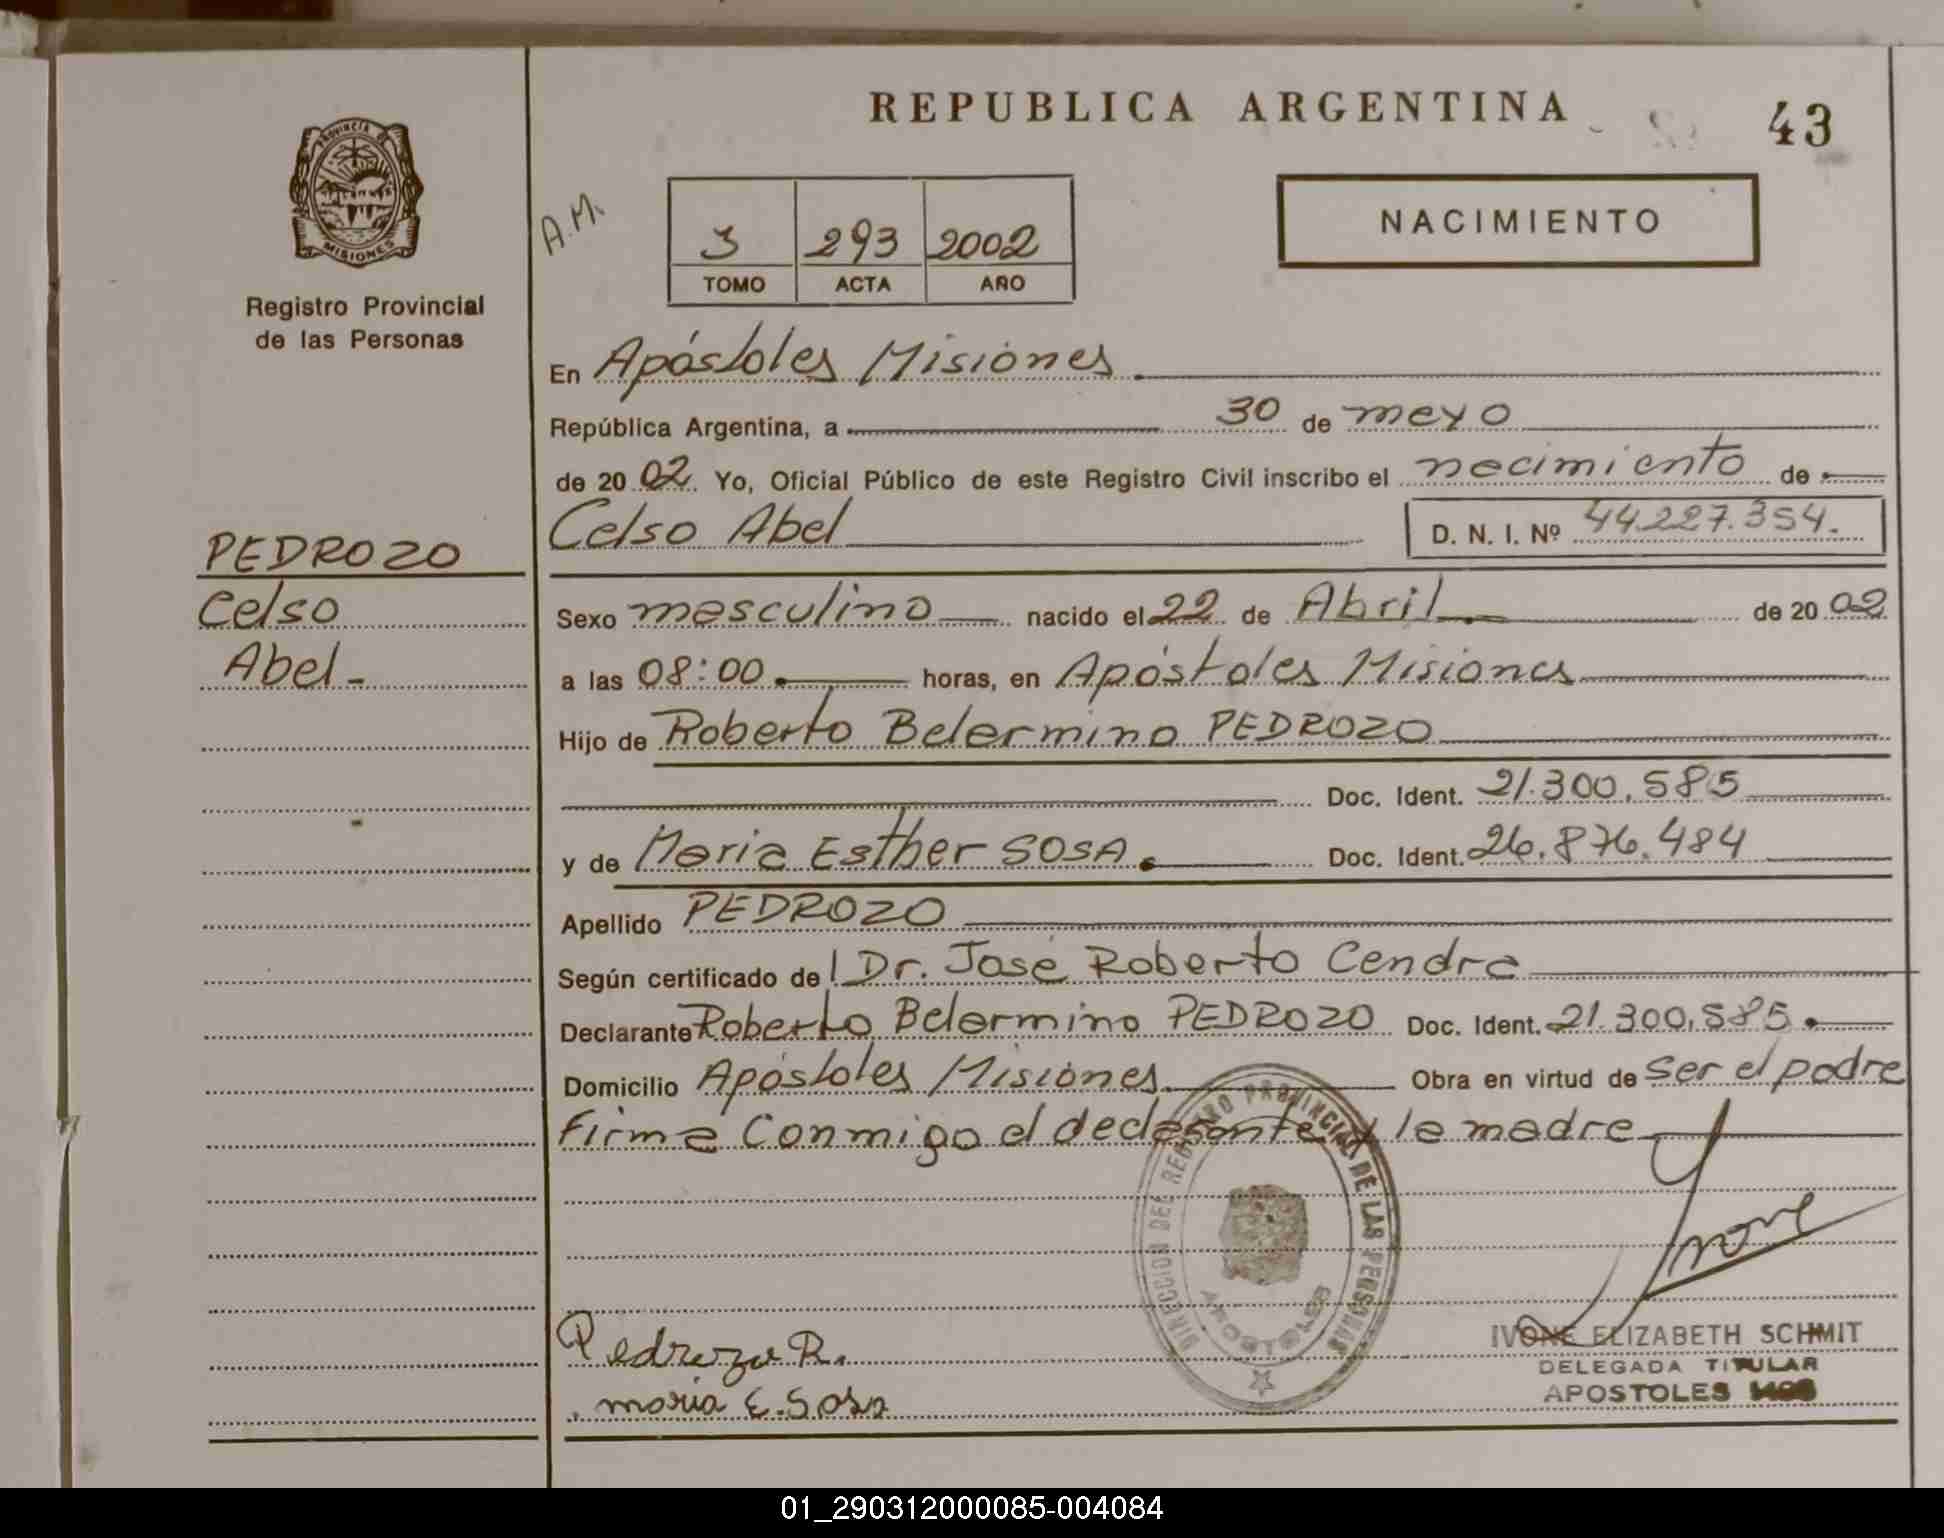 REPUBLICA ARGENTINA
43
PROVINCIA DE
MISIONES
Registro Provincial
de las Personas
A.M.
3 293 2002
TOMO ACTA AÑO
NACIMIENTO
En Apóstoles Misiones
República Argentina, a 30 de mayo
de 20 02 Yo, Oficial Público de este Registro Civil inscribo el nacimiento de
Celso Abel D. N. I. Nº 44.227.354.
PEDROZO
Celso
Abel
Sexo masculino nacido el 22 de Abril de 20 02
a las 08:00 horas, en Apóstoles Misiones
Hijo de Roberto Belarmino PEDROZO
Doc. Ident. 21.300.585
y de Maria Esther SOSA. Doc. Ident. 26.876.484
Apellido PEDROZO
Según certificado de Dr. José Roberto Cendra
Declarante Roberto Belarmino PEDROZO Doc. Ident. 21.300.585.
Domicilio Apóstoles Misiones Obra en virtud de ser el padre
Firma Conmigo el declarante y la madre
DIRECCION DEL REGISTRO PROVINCIAL DE LAS PERSONAS
APOSTOLES
Ivone
IVONE ELIZABETH SCHMIT
DELEGADA TITULAR
APOSTOLES
Pedrozo R.
maria E. Sosa
01_290312000085-004084